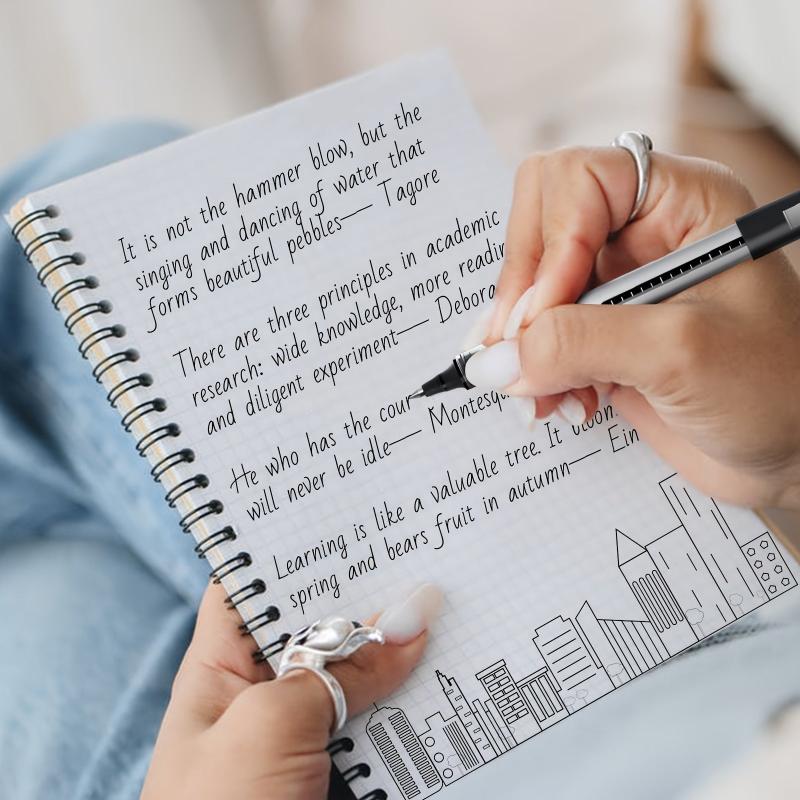 It is not the hammer blow, but the
singing and dancing of water that
forms beautiful pebbles— Tagore
There are three principles in academic
research: wide knowledge, more
and diligent experiment—
He who has the
will never be idle—
Learning is like a valuable tree. It
spring and bears fruit in autumn—